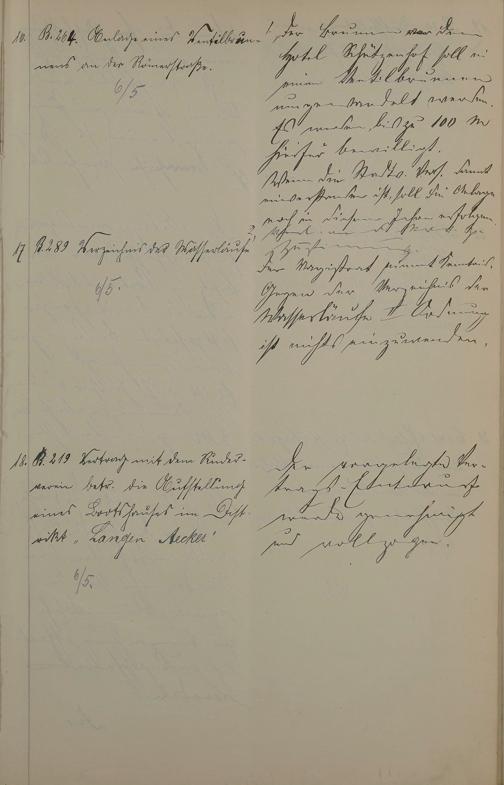 16. B. 264. Anlage eines Ventilbrun-
nens an der Römerstraße.
6/5
Der Brunnen vor dem
Hotel Schützenhof soll in
einen Ventilbrunnen
umgewandelt werden.
Es werden bis zu 100 M
hierfür bewilligt.
Wenn die Stadtv. Vers. damit
einverstanden ist, soll die Anlage
noch in diesem Jahre erfolgen.
17 B. 289 Verzeichnis der Wasserläufe
6/5.
Der Magistrat nimmt Kenntnis.
Gegen das Verzeichnis der
Wasserläufe II Ordnung
ist nichts einzuwenden.
18. B. 219 Vertrag mit dem Ruder-
verein betr. die Aufstellung
eines Bootshauses im Dist-
rikt „Langen Aecker"
6/5.
Der vorgelegte Ver-
trags-Entwurf
wurde genehmigt
und vollzogen.